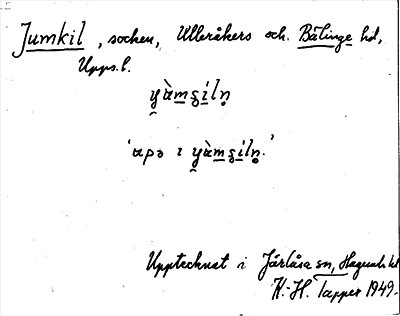 Jumkil, socken, Ulleråkers och. Bälinge hd,
Upps. l.
y̯àmşiln̥
'apə ɪ y̯àmşiln̥.'
Upptecknat i Järlåsa sn, Hagunda hd
K.-H. Tapper 1949.